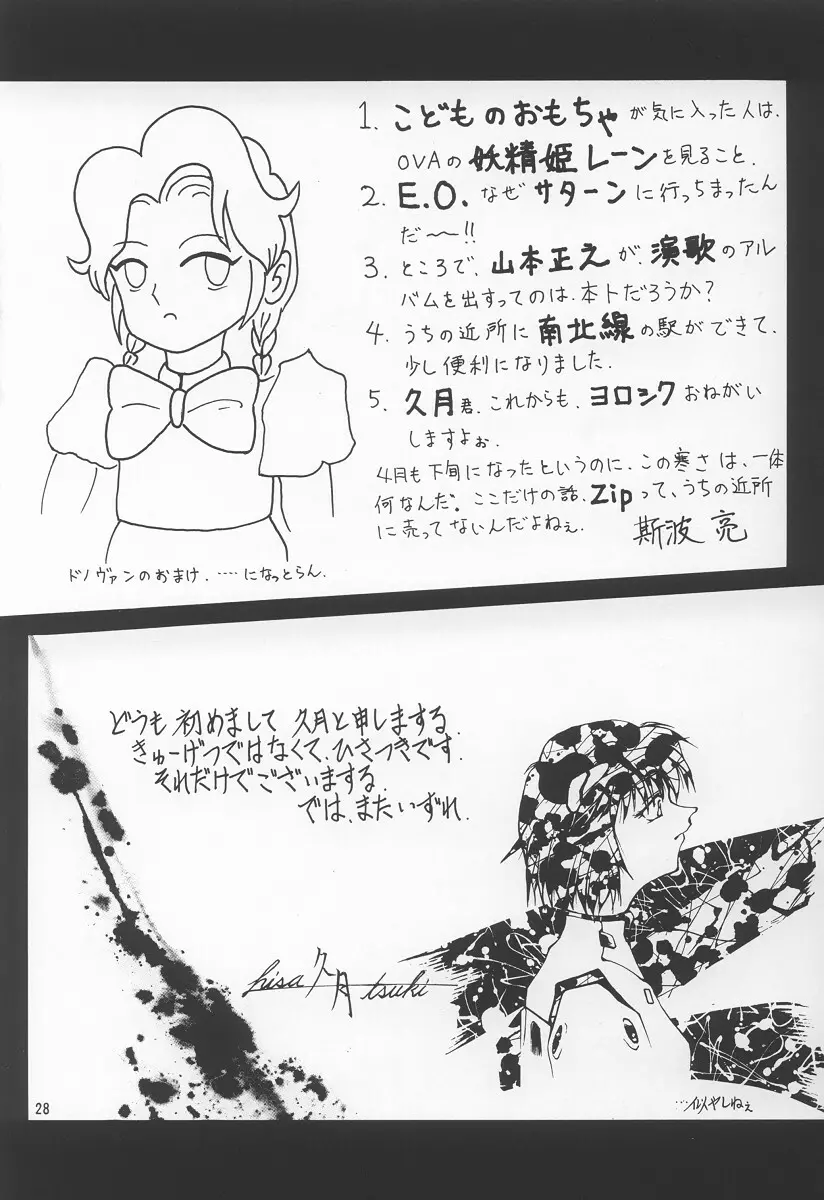 1. こどものおもちゃが気に入った人は、
OVAの妖精姫レーンを見ること.
2. E.O. なぜサターンに行っちまったん
だ〜〜!!
3. ところで、山本正之が、演歌のアル
バムを出すってのは、本トだろうか?
4. うちの近所に南北線の駅ができて、
少し便利になりました.
5. 久月君、これからも、ヨロシクおねがい
しますよぉ.
4月も下旬になったというのに、この寒さは、一体
何なんだ。ここだけの話、Zipって、うちの近所
に売ってないんだよねぇ.
斯波 亮
ドノヴァンのおまけ. ····になっとらん.
どうも 初めまして 久月と申しまする.
きゅーげつではなくて、ひさつきです.
それだけでございまする.
では、またいずれ.
hisa久月tsuki
…似やしねぇ
28